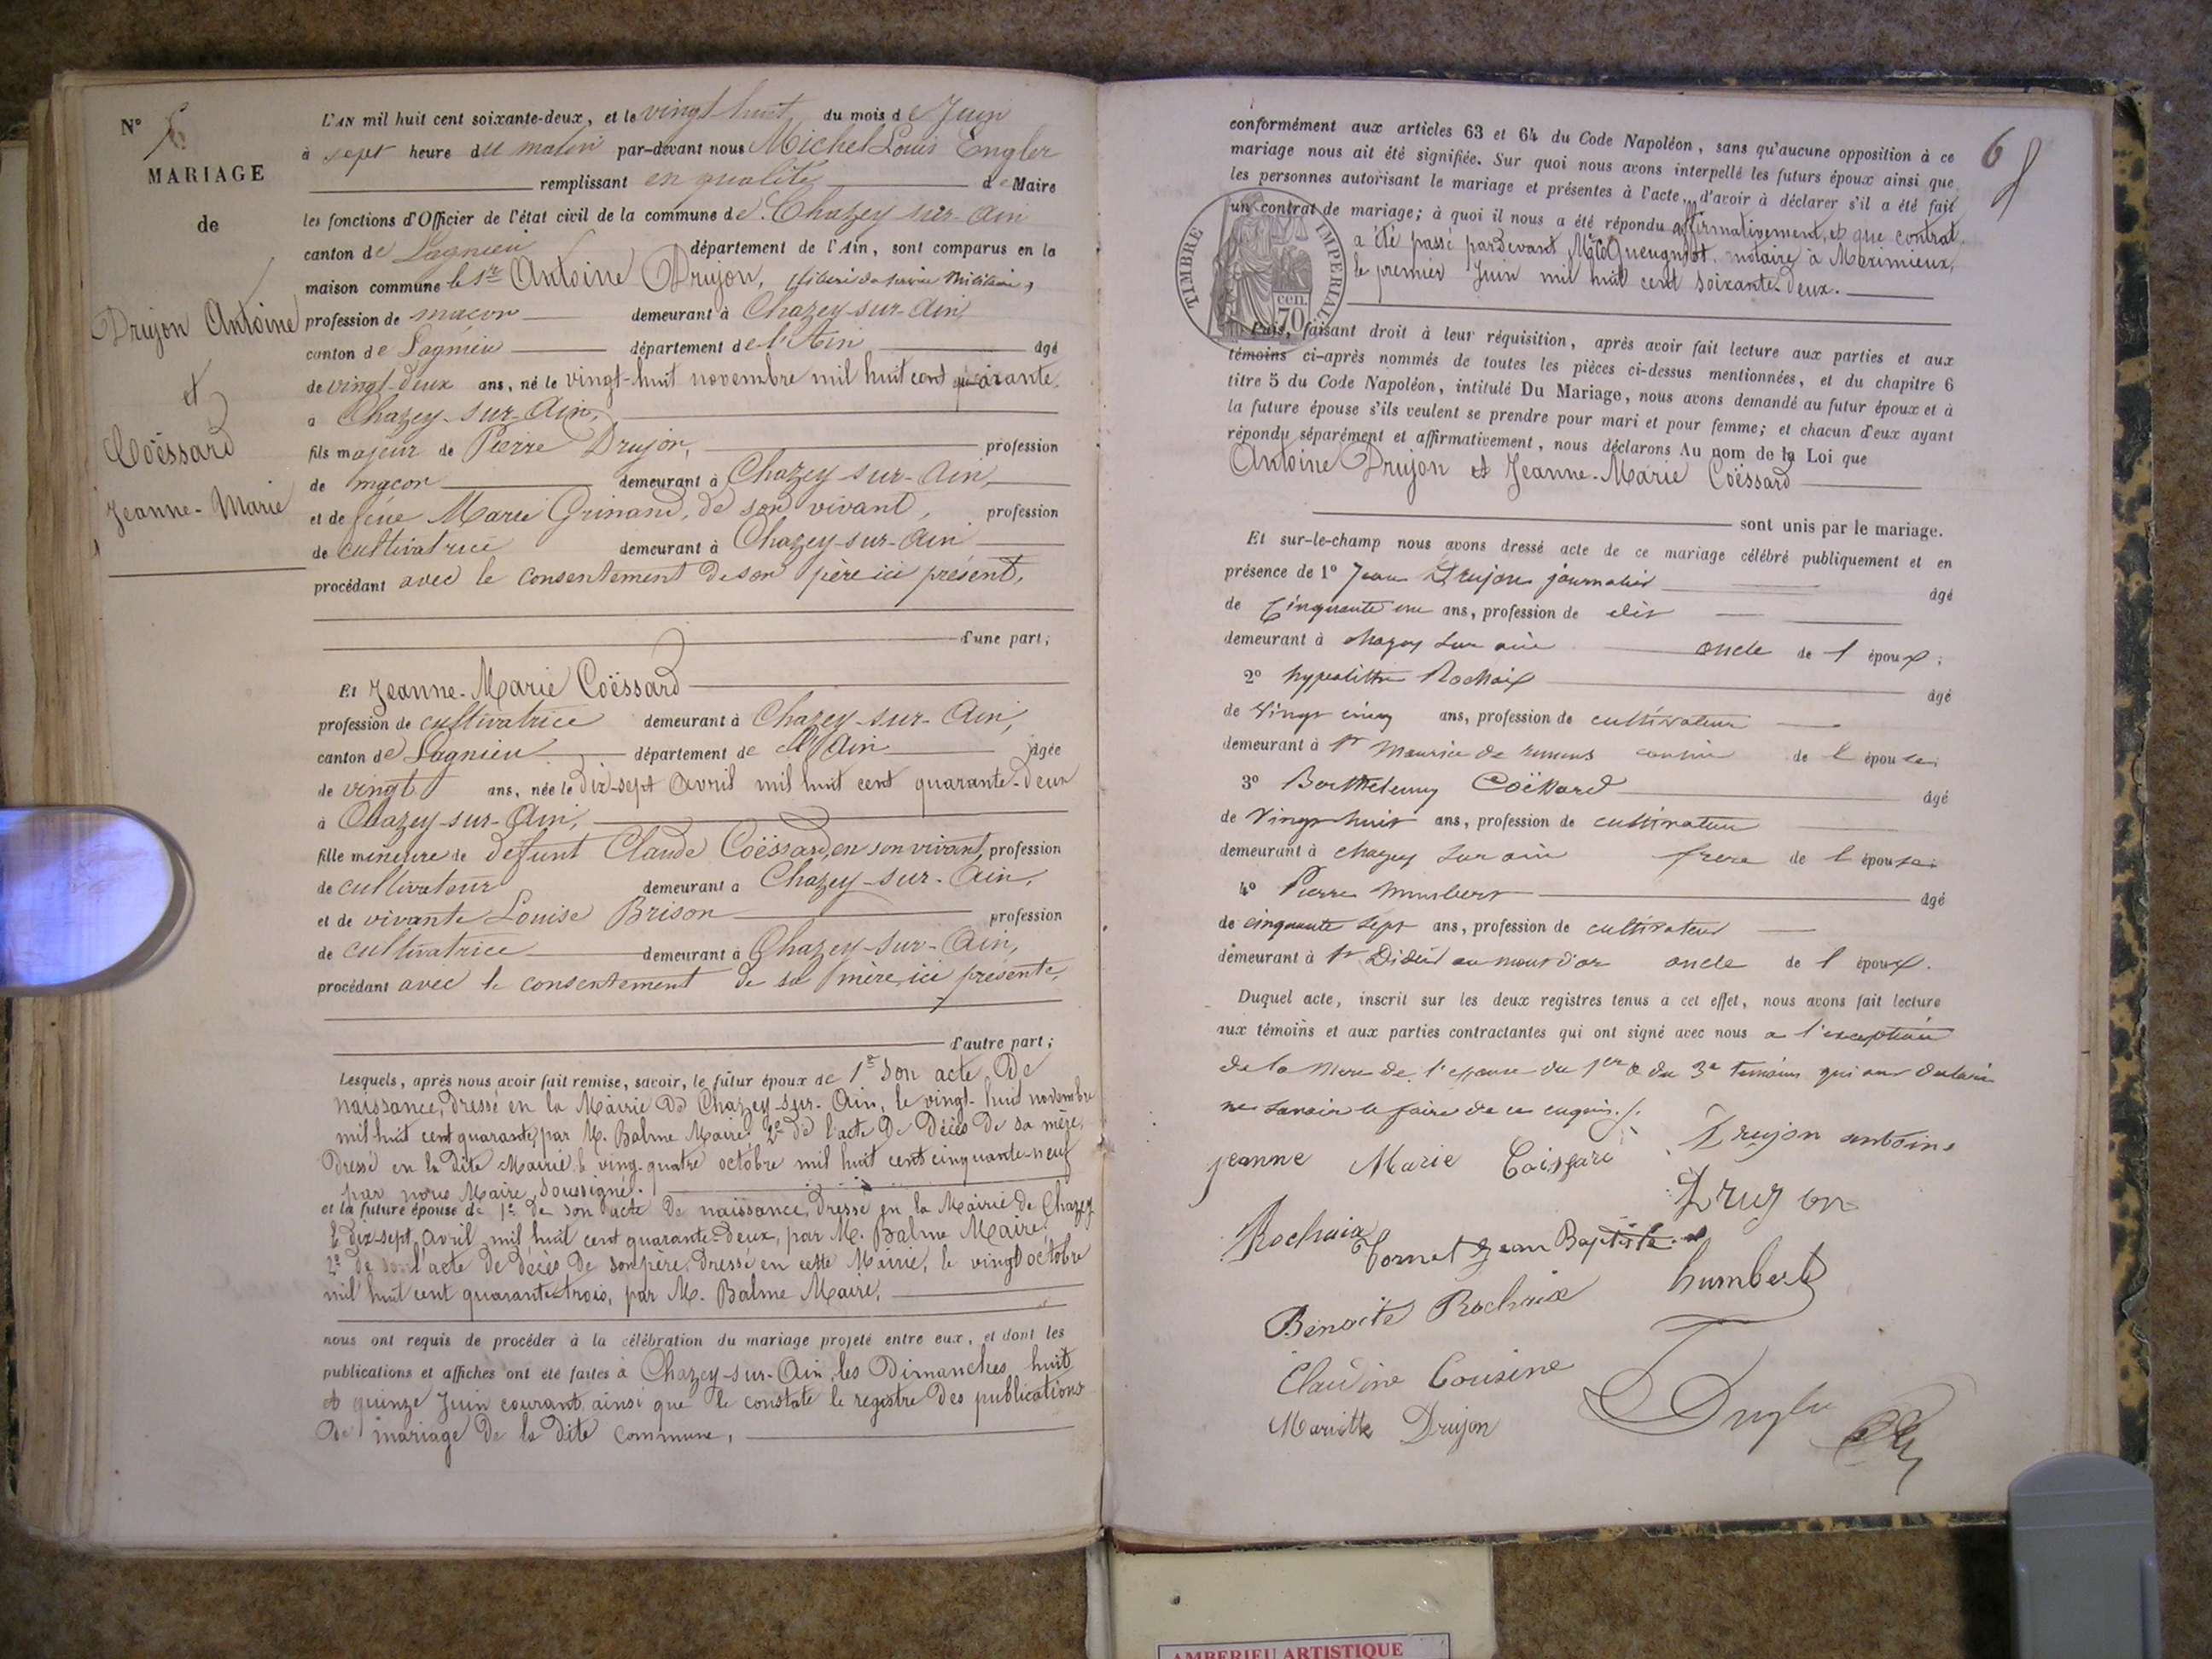 N° 6
MARIAGE
de
Drujon Antoine
et
Coëssard
Jeanne-Marie
L'AN mil huit cent soixante-deux, et le vingt huit du mois de Juin
à sept heure du matin par-devant nous Michel Louis Engler
remplissant en qualité de Maire
les fonctions d'Officier de l'état civil de la commune de Chazey sur-Ain
canton de Lagnieu département de l'Ain, sont comparus en la
maison commune le Sr Antoine Drujon, libéré du service militaire,
profession de maçon demeurant à Chazey-sur-Ain
canton de Lagnieu département de l'Ain âgé
de vingt-deux ans, né le vingt-huit novembre mil huit cent quarante
à Chazey-sur-Ain,
fils majeur de Pierre Drujon, profession
de maçon demeurant à Chazey-sur-Ain,
et de feue Marie Guinand, de son vivant, profession
de cultivatrice demeurant à Chazey-sur-Ain
procédant avec le consentement de son père ici présent,
d'une part;
Et Jeanne-Marie Coëssard
profession de cultivatrice demeurant à Chazey-sur-Ain,
canton de Lagnieu département de l'Ain âgée
de vingt ans, née le dix-sept Avril mil huit cent quarante-deux
à Chazey-sur-Ain,
fille mineure de défunt Claude Coëssard, en son vivant, profession
de cultivateur demeurant à Chazey-sur-Ain,
et de vivante Louise Brison profession
de cultivatrice demeurant à Chazey-sur-Ain,
procédant avec le consentement de sa mère, ici présente,
d'autre part;
Lesquels, après nous avoir fait remise, savoir, le futur époux de 1° son acte de
naissance, dressé en la Mairie de Chazey-sur-Ain, le vingt-huit novembre
mil huit cent quarante, par M. Balme Maire; 2° de l'acte de décès de sa mère,
dressé en la dite Mairie le ving-quatre octobre mil huit cent cinquante-neuf
par nous Maire soussigné.
et la future épouse de 1° de son acte de naissance, dressé en la Mairie de Chazey
le dix-sept avril mil huit cent quarante-deux, par M. Balme Maire;
2° de l'acte de décès de son père, dressé en cette Mairie, le vingt octobre
mil huit cent quarante-trois, par M. Balme Maire,
nous ont requis de procéder à la célébration du mariage projeté entre eux, et dont les
publications et affiches ont été faites à Chazey-sur-Ain, les Dimanches huit
et quinze Juin courant, ainsi que le constate le registre des publications
de mariage de la dite commune,
6
conformément aux articles 63 et 64 du Code Napoléon, sans qu'aucune opposition à ce
mariage nous ait été signifiée. Sur quoi nous avons interpellé les futurs époux ainsi que
les personnes autorisant le mariage et présentes à l'acte, d'avoir à déclarer s'il a été fait
un contrat de mariage; à quoi il nous a été répondu affirmativement, et que contrat
a été passé pardevant Me notaire à Meximieux,
le premier Juin mil huit cent soixante-deux.
TIMBRE IMPERIAL
70 cen.
Puis, faisant droit à leur réquisition, après avoir fait lecture aux parties et aux
témoins ci-après nommés de toutes les pièces ci-dessus mentionnées, et du chapitre 6
titre 5 du Code Napoléon, intitulé Du Mariage, nous avons demandé au futur époux et à
la future épouse s'ils veulent se prendre pour mari et pour femme; et chacun d'eux ayant
répondu séparément et affirmativement, nous déclarons Au nom de la Loi que
Antoine Drujon et Jeanne-Marie Coëssard
sont unis par le mariage.
Et sur-le-champ nous avons dressé acte de ce mariage célébré publiquement et en
présence de 1° Jean Drujon journalier âgé
de Cinquante un ans, profession de
demeurant à chazey sur ain oncle de l époux;
2° hypolitte Rochaix âgé
de Vingt cinq ans, profession de cultivateur
demeurant à St Maurice de remens cousin de l épouse;
3° Barthélemy Coëssard âgé
de Vingt huit ans, profession de cultivateur
demeurant à chazey sur ain frere de l épouse;
4° Pierre humbert âgé
de cinquante sept ans, profession de cultivateur
demeurant à St Didier au mont d'or oncle de l époux.
Duquel acte, inscrit sur les deux registres tenus à cet effet, nous avons fait lecture
aux témoins et aux parties contractantes qui ont signé avec nous a l'exception
de la mere de l'epouse du 1er & du 3e temoins qui ont déclaré
ne savoir le faire de ce enquis.
jeanne Marie Coissard Drujon antoine
Drujon
Rochaix Cornet jean Baptiste
humbert
Benoite Rochaix
Claudine Cousine
Mariette Drujon Engler
AMBERIEU ARTISTIQUE